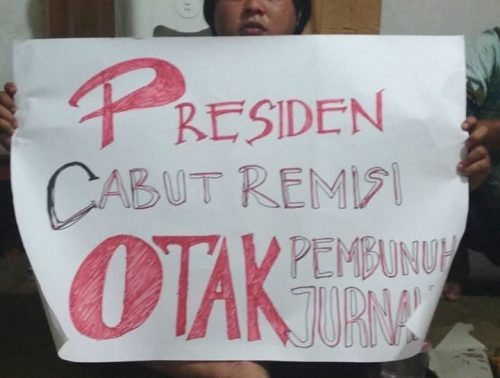 PRESIDEN
CABUT REMISI
OTAK PEMBUNUH